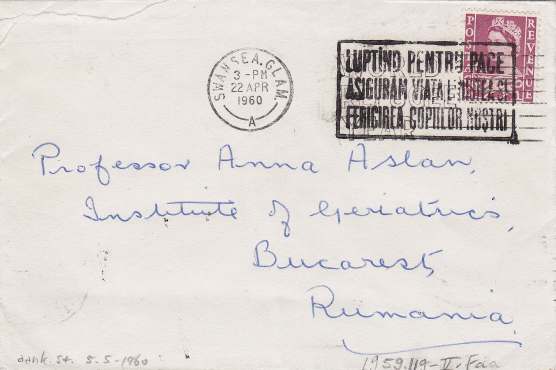 SWANSEA. GLAM.
3 - PM
22 APR
1960
A
POSTAGE
REVENUE
LUPTÎND PENTRU PACE
ASIGURĂM VIAȚA LINIȘTEA ȘI
FERICIREA COPIILOR NOȘTRI
Professor Anna Aslan,
Institute of Geriatrics,
Bucarest,
Rumania.
5-5-1960
1959.119-II.Faa